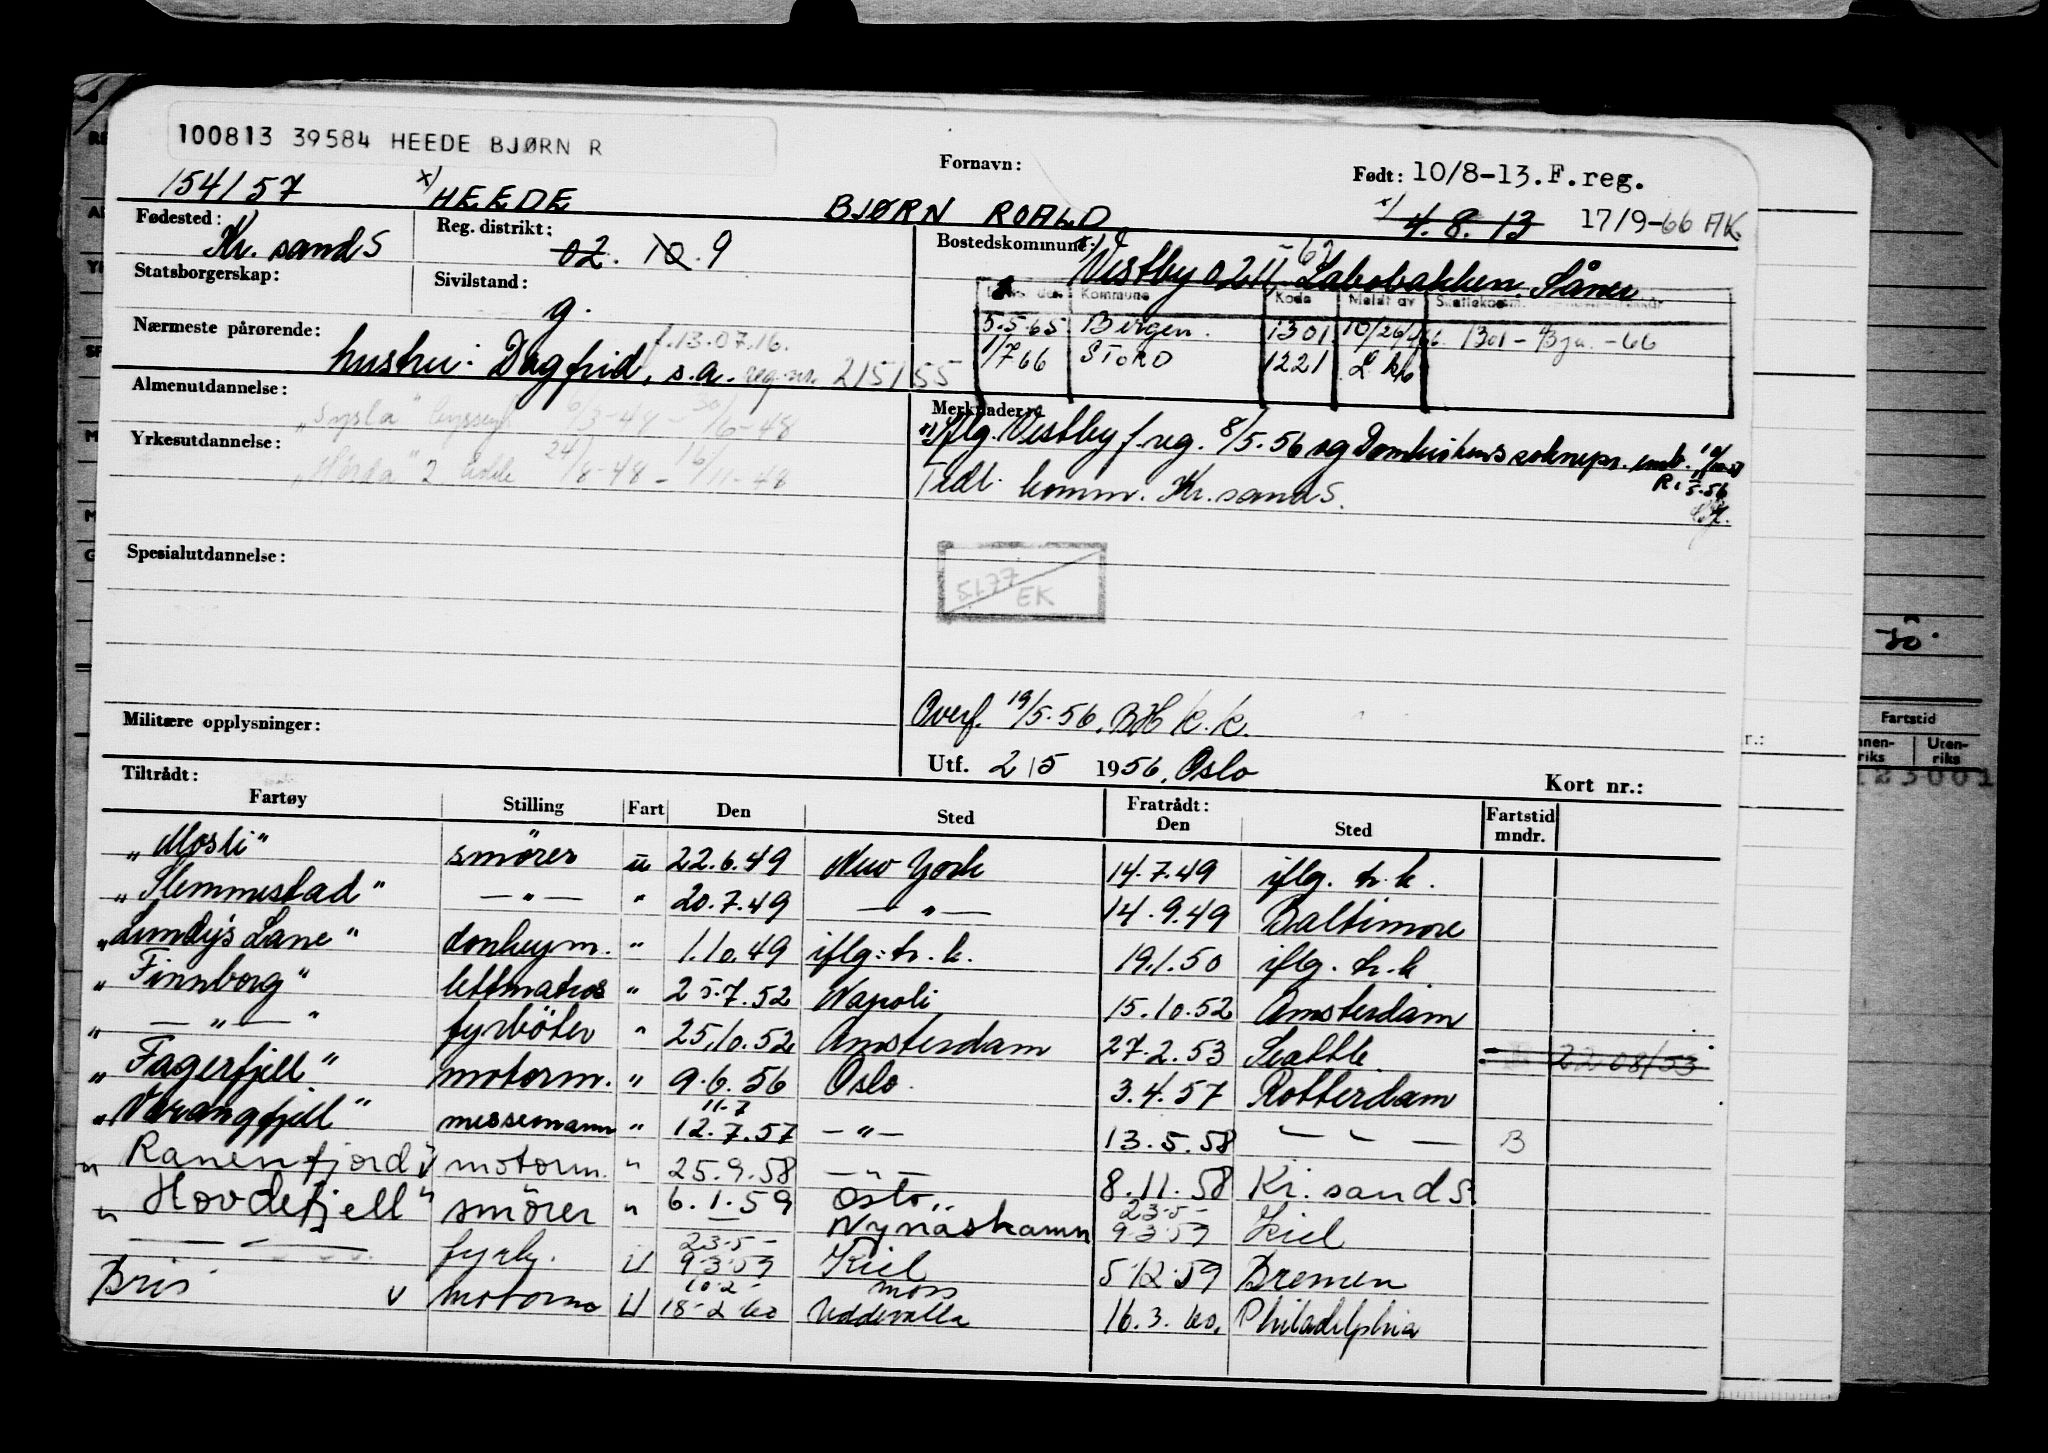 100813 39584 HEEDE BJØRN R
154/57 x) HEEDE
Fornavn: BJØRN ROALD
Født: 10/8-13. F.reg.
x) 4.8.13 17/9-66 AK
Fødested: Kr. sand S
Reg. distrikt: 02. 10. 9
Bostedskommune: Vestby 0211 Labobakken. Såner
Statsborgerskap:
Sivilstand: g.
Kommune Kode Meldt av
5.5.65 Bergen. 1301 10/26/466 1301 - -66
1/7 66 STORD 1221
Nærmeste pårørende: hustru: Dagfrid, s.a. f. 13.07.16. reg.nr. 215155
Almenutdannelse:
"Sysla" 6/3-48 - 30/6-48
Yrkesutdannelse:
"Hörda" 2 24/8-48 - 16/11-48
Merknader:
x) Iflg. Vestby f.reg. 8/5.56 og
Tidl. komm. Kr.sand S.
Spesialutdannelse:
5.1.77 EK
Militære opplysninger:
Overf. 19/5.56. BH k.k.
Utf. 2/5 1956, Oslo
Kort nr.:
Tiltrådt:
Fartøy Stilling Fart Den Sted Fratrådt: Den Sted Fartstid mndr.
"Mosli" smører u 22.6.49 New York 14.7.49 iflg. h.k.
"Slemmestad" — " — " 20.7.49 — " — 14.9.49 Baltimore
"Lundy's Lane" donkeym. " 1.10.49 iflg: h.k. 19.1.50 iflg. h.k.
"Finnborg" lettmatros " 25.7.52 Napoli 15.10.52 Amsterdam
" — " — " fyrböter " 25.10.52 Amsterdam 27.2.53 Seattle. 22 08/53
"Fagerfjell" motorm. " 9.6.56 Oslo. 3.4.57 Rotterdam
"Varangfjell" messemann " 11.7 12.7.57 — " — 13.5.58 — " — B
"Ranenfjord" v motorm. " 25.9.58 — 8.11.58 Kr. sand S.
"Hovdefjell" smörer " 6.1.59 Oslo, Nynäshamn 23.5 - 9.3.59 Kiel
— " — fyrb. U 23.5 - 9.3.59 Kiel 5.12.59 Bremen
Bris v motorm U 10.2 - 18-2 60 Moss Uddevalla 16.3.60. Philadelphia
Fartstid
Innen-riks Uten-riks
123001